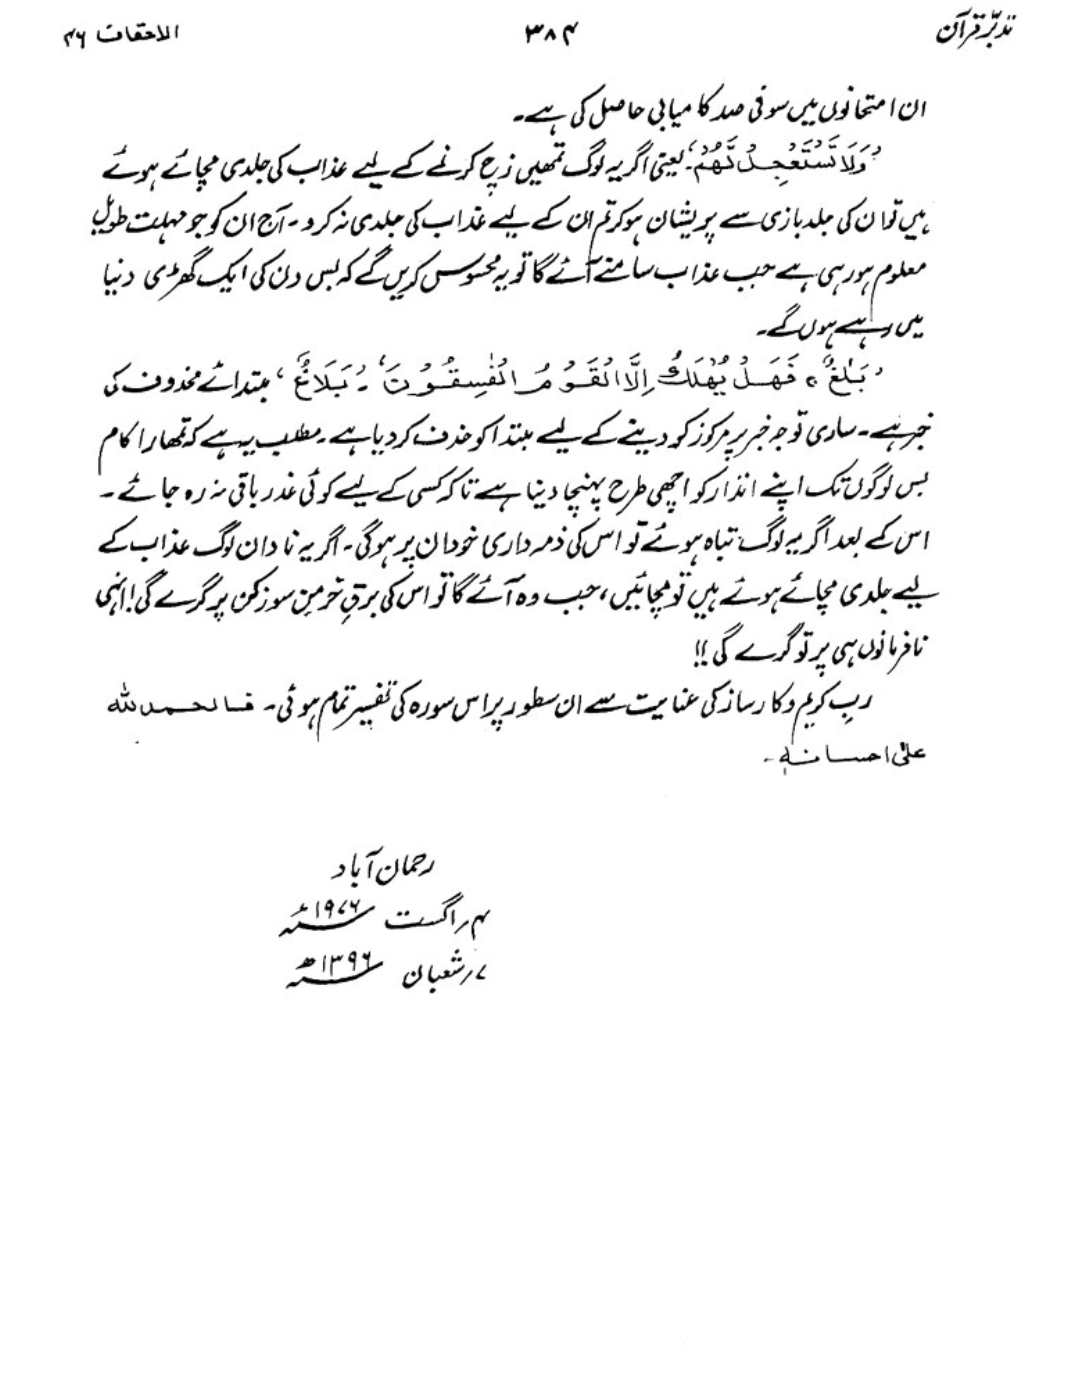 تدبّرِ قرآن ۳۸۴ الاحقاف ۴۶
ان امتحانوں میں سو فی صد کامیابی حاصل کی ہے۔
’وَلَا تَسْتَعْجِلْ لَّهُمْ‘، یعنی اگر یہ لوگ تمھیں زچ کرنے کے لیے عذاب کی جلدی مچائے ہوئے
ہیں تو ان کی جلد بازی سے پریشان ہو کر تم ان کے لیے عذاب کی جلدی نہ کرو۔ آج ان کو جو مہلت طویل
معلوم ہو رہی ہے جب عذاب سامنے آئے گا تو یہ محسوس کریں گے کہ بس دن کی ایک گھڑی دنیا
میں رہے ہوں گے۔
’بَلٰغٌ ۚ فَهَلْ يُهْلَكُ اِلَّا الْقَوْمُ الْفٰسِقُوْنَ‘۔ ’بَلَاغٌ‘، مبتدائے محذوف کی
خبر ہے۔ ساری توجہ خبر پر مرکوز کر دینے کے لیے مبتدا کو حذف کر دیا ہے۔ مطلب یہ ہے کہ تمھارا کام
بس لوگوں تک اپنے انذار کو اچھی طرح پہنچا دینا ہے تاکہ کسی کے لیے کوئی عذر باقی نہ رہ جائے۔
اس کے بعد اگر یہ لوگ تباہ ہوئے تو اس کی ذمہ داری خود ان پر ہوگی۔ اگر یہ نادان لوگ عذاب کے
لیے جلدی مچائے ہوئے ہیں تو مچائیں، جب وہ آئے گا تو اس کی برقِ خرمن سوز کن پر گرے گی! انہی
نافرمانوں ہی پر تو گرے گی!!
ربِ کریم و کارساز کی عنایت سے ان سطور پر اس سورہ کی تفسیر تمام ہوئی۔ فالحمد للہ
علیٰ احسانہٖ۔
رحمان آباد
۴؍ اگست ۱۹۷۶ء
۷؍ شعبان ۱۳۹۶ھ